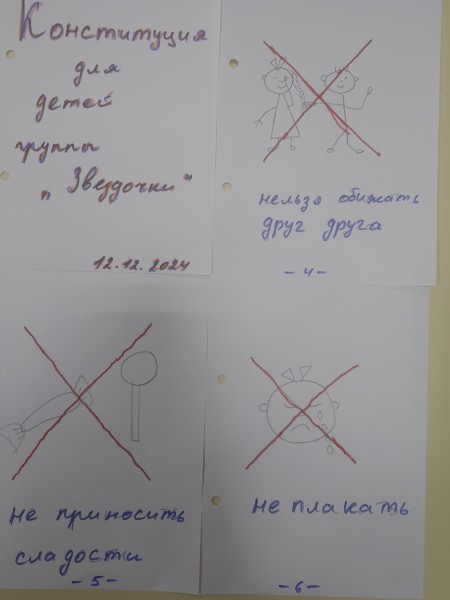 Конституция
для
детей
группы
"Звездочки"
12.12.2024
нельзя обижать
друг друга
-4-
не приносить
сладости
-5-
не плакать
-6-